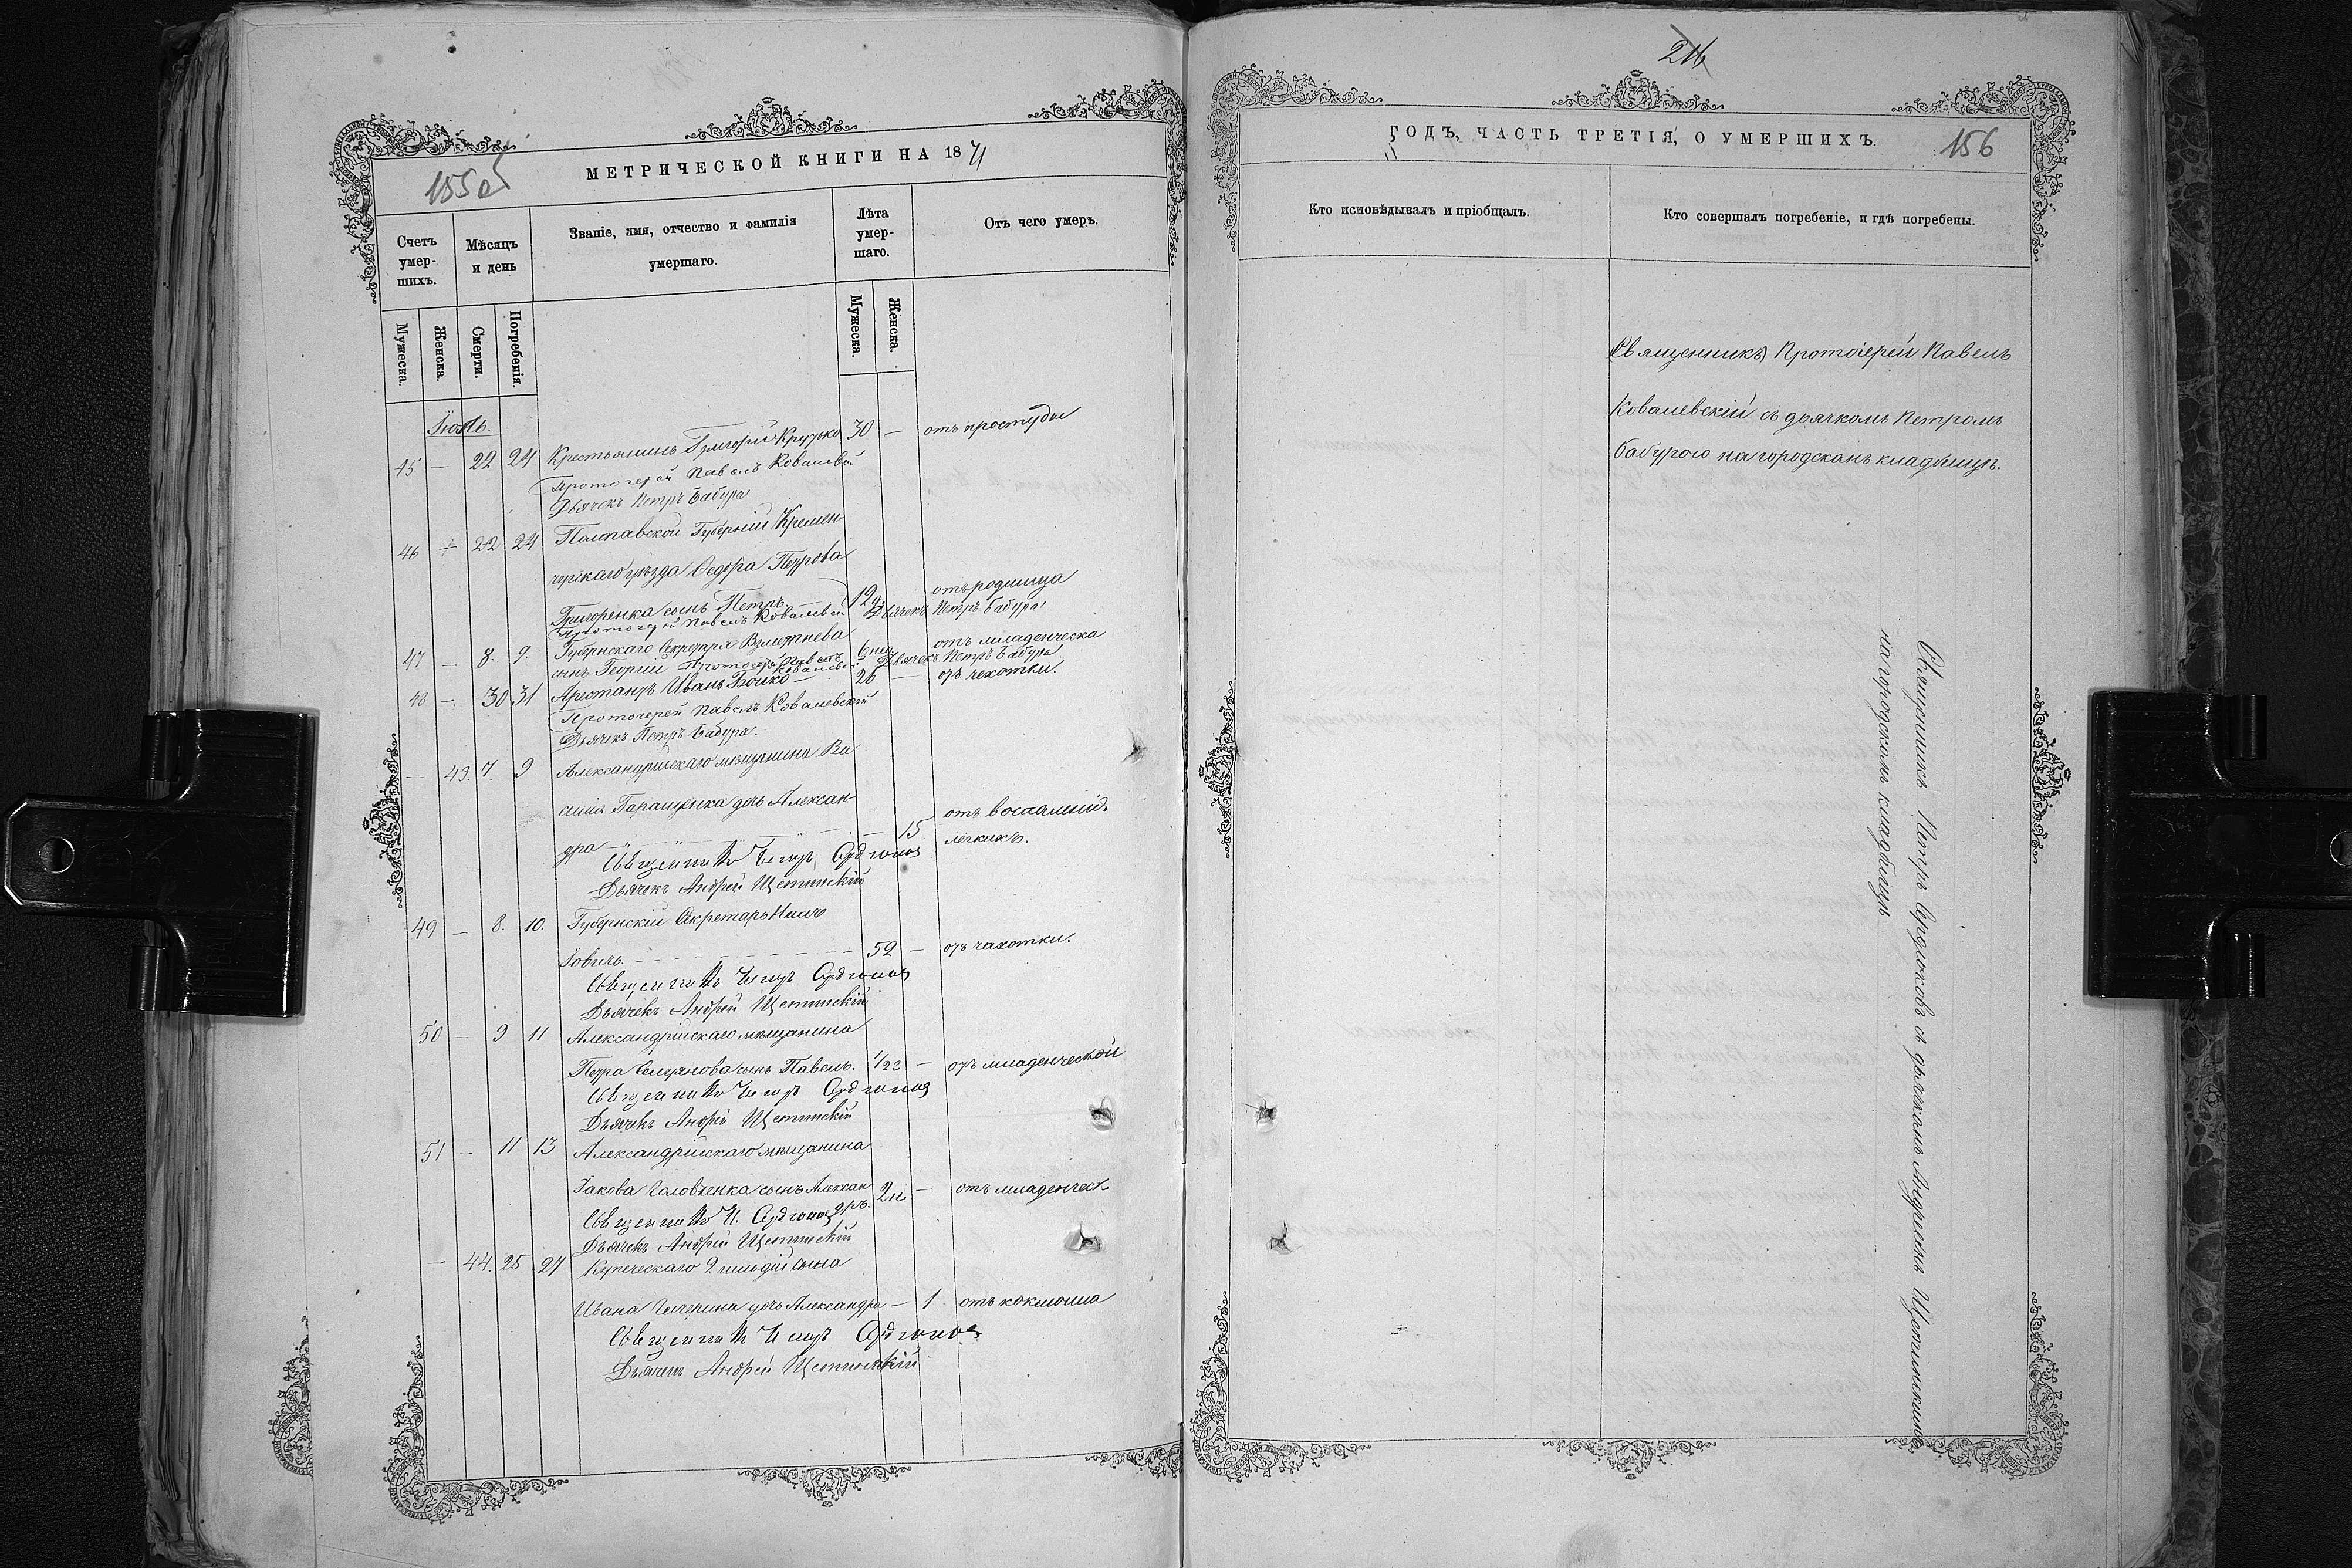 МЕТРИЧЕСКОЙ КНИГИ НА 1871
155об
Счетъ умер-шихъ.
Мѣсяцъ и день
Званіе, имя, отчество и фамилія умершаго.
Лѣта умер-шаго.
Отъ чего умеръ.
Мужеска. Женска. Смерти. Погребенія. Мужеска. Женска.
Іюль.
45 — 22 24 Крестьянинъ Григорій 30 — отъ простуды
Протоіерей Павелъ Ковалевскій
Дьячекъ Петръ Бабура
46 22 24 Полтавской Губерніи Кремен
чугскаго уѣзда Ѳедора Петрова
Григоренка сынъ Петръ 12 отъ родимца
Протоіерей Павелъ Ковалевскій Дьячекъ Петръ Бабура
47 — 8. 9. Губернскаго Секретаря отъ младенческа
сынъ Георгій 6 Протоіерей Павелъ Ковалевскій Дьячекъ Петръ Бабура
48 — 30 31 Арестантъ Иванъ Бойко — 26 — отъ чехотки.
Протоіерей Павелъ Ковалевскій
Дьячекъ Петръ Бабура.
— 43. 7. 9 Александрійскаго мѣщанина Ва
силія Геращенка дочь Алексан
дра — 15 отъ воспаленія легкихъ.
Священникъ Петръ Ордюковъ
Дьячекъ Андрей Щетинскій
49 — 8. 10. Губернскій Секретарь
59 — отъ чахотки.
Священникъ Петръ Ордюковъ
Дьячекъ Андрей Щетинскій
50 — 9 11 Александрійскаго мѣщанина
Петра сынъ Павелъ. 1/2 — отъ младенческой
Священникъ Петръ Ордюковъ
Дьячекъ Андрей Щетинскій
51 — 11 13 Александрійскаго мѣщанина
Іакова Головченка сынъ Алексан
дръ. 2н — отъ младенческ.
Священникъ П. Ордюковъ
Дьячекъ Андрей Щетинскій
— 44. 25 27 Купеческаго 2 гильдіи сына
Ивана Чичерина дочь Александра — 1 отъ коклюша
Священникъ Петръ Ордюковъ
Дьячекъ Андрей Щетинскій
216
ГОДЪ, ЧАСТЬ ТРЕТІЯ, О УМЕРШИХЪ.
156
Кто исповѣдывалъ и пріобщалъ.
Кто совершалъ погребеніе, и гдѣ погребены.
Священникъ Протоіерей Павелъ
Ковалевскій съ дьячкомъ Петромъ
Бабурою на городскомъ кладбищѣ.
Священникъ Петръ Ордюковъ съ дьячкомъ Андреемъ Щетинскимъ
на городскомъ кладбищѣ